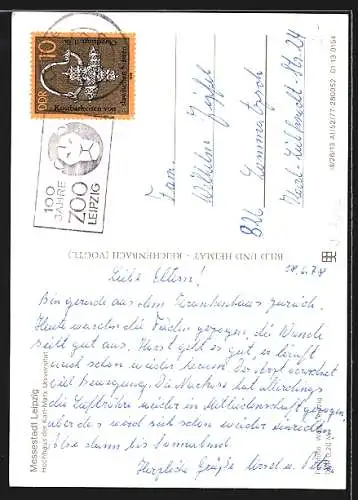 DDR
10
Kostbarkeiten von
100
JAHRE
ZOO
LEIPZIG
Fam.
Wilhelm
Karl-Liebknecht-Str. 24
III/26/13 A1/527/77 280052 01 13 0154
BILD UND HEIMAT · REICHENBACH (VOGTL)
Messestadt Leipzig
Hochhaus der Karl-Marx-Universität
Liebe Eltern!
Bin gerade aus dem Krankenhaus zurück.
Heute wurden die Fäden gezogen, die Wunde
sieht gut aus. Horst geht es gut, er läuft
auch schon wieder herum. Der Arzt verordnet
viel Bewegung. Die Narkose hat allerdings
die Luftröhre wieder in Mitleidenschaft gezogen,
aber das wird sich schon wieder einrenken.
Also dann bis Sonnabend
Herzliche Grüße